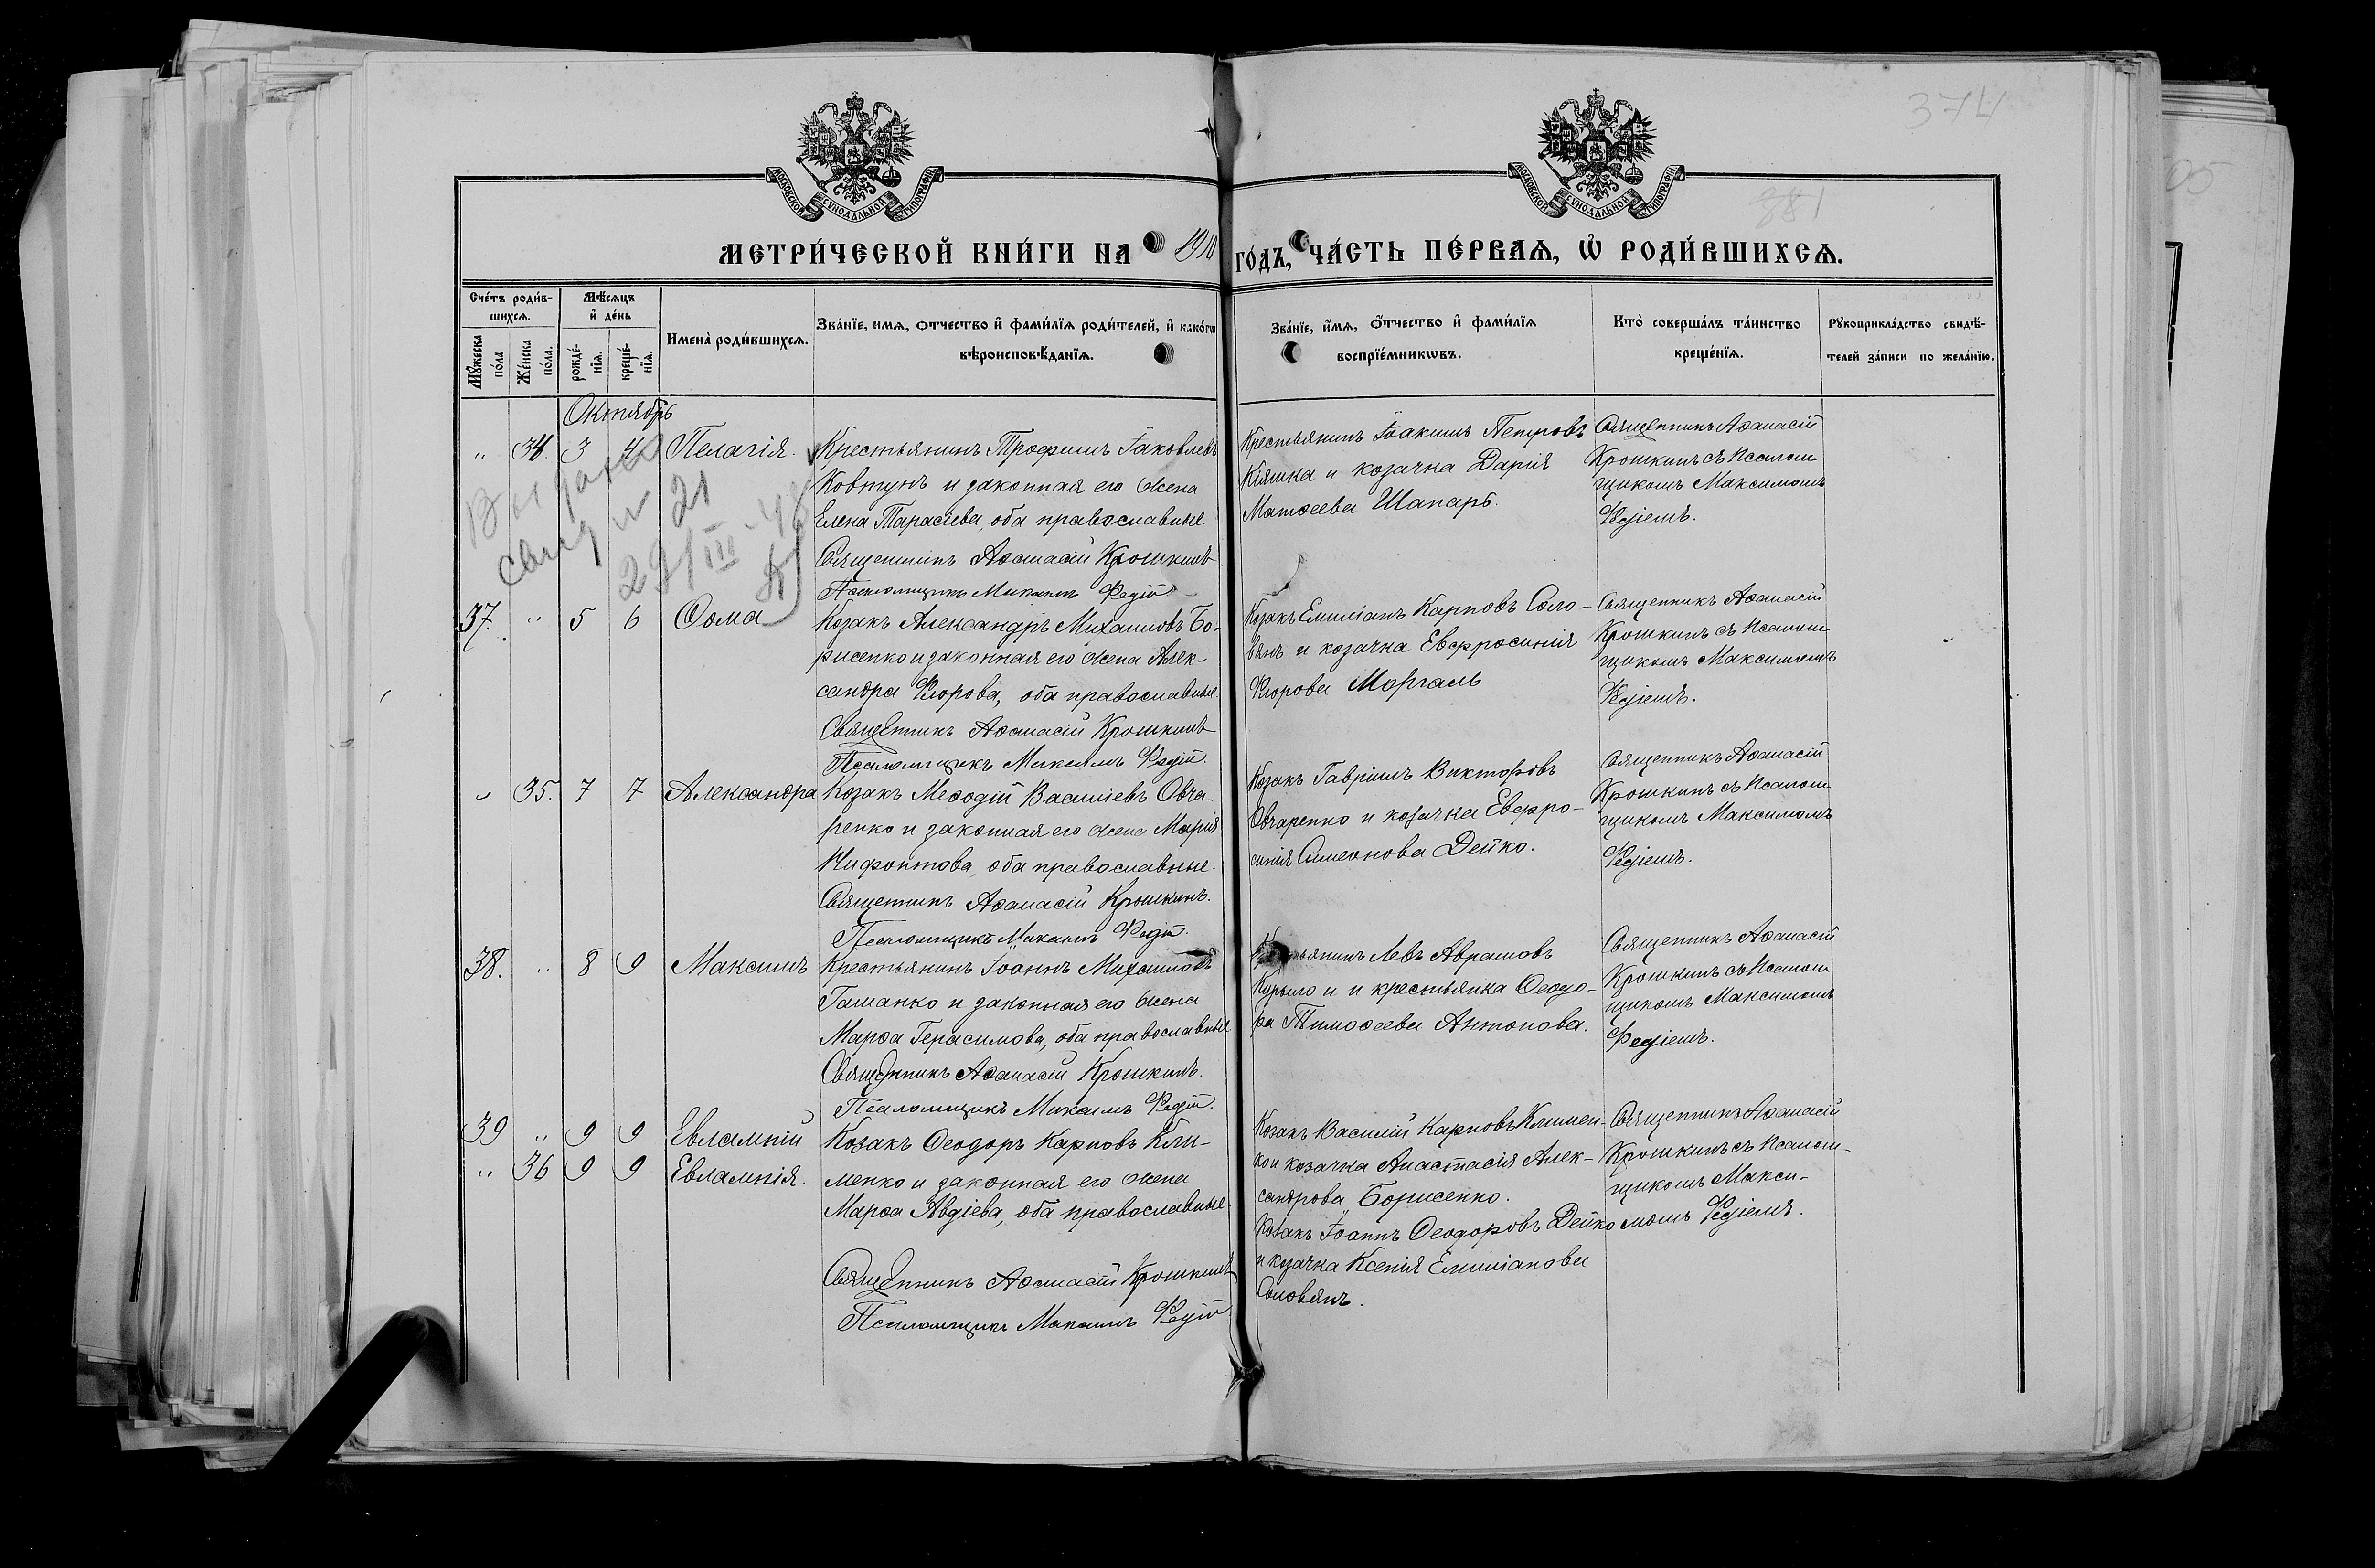 374
381
МОСКОВСКОЙ СѴНОДАЛЬНОЙ ТИПОГРАФІИ
МОСКОВСКОЙ СѴНОДАЛЬНОЙ ТИПОГРАФІИ
МЕТРИ́ЧЕСКОЙ КНИ́ГИ НА 1910 ГО́ДЪ, ЧА́СТЬ ПЕ́РВАѦ, Ѡ РОДИ́ВШИХСѦ.
Сче́тъ роди́в-
шихсѧ.
Мѹ́жеска по́ла
Же́нска по́ла.
Мѣ́сѧцъ
и де́нь
рожде́-
нїѧ.
креще́-
нїѧ.
Имена̀ роди́вшихсѧ.
Зва́нїе, имѧ, о́тчество и фами́лїѧ роди́телей, и како́гѡ
вѣроисповѣ́данїѧ.
Зва́нїе, и́мѧ, о́тчество и фами́лїѧ
воспрїе́мникѡвъ.
Кто̀ соверша́лъ та́инство
креще́нїѧ.
Рѹкоприкла́дство свидѣ́-
телей за́писи по жела́нїю.
Октябрь
" 34. 3 4 Пелагія.
Крестьянинъ Трофимъ Іаковлевъ
Ковтунъ и законная его жена
Елена Тарасіева, оба православные.
Священникъ Аѳанасій Крошкинъ
Псаломщикъ Максимъ Федій
Крестьянинъ Іоакимъ Петровъ
Кіяшка и козачка Дарія
Матѳеева Шапаръ.
Священникъ Аѳанасій
Крошкинъ съ Псалом
щикомъ Максимомъ
Федіемъ.
Выдано
свид
21
29/III-48
37. " 5 6 Ѳома
Козакъ Александръ Михаиловъ Бо-
рисенко и законная его жена Алек-
сандра Флорова, оба православные.
Священникъ Аѳанасій Крошкинъ
Псаломщикъ Максимъ Федій.
Козакъ Емиліанъ Карповъ Соло-
вянъ и козачка Евфросинія
Флорова Моргаль
Священникъ Аѳанасій
Крошкинъ съ Псалом-
щикомъ Максимомъ
Федіемъ.
" 35. 7 7 Александра
Козакъ Меѳодій Василіевъ Овча-
ренко и законная его жена Марія
Нифонтова, оба православные.
Священникъ Аѳанасій Крошкинъ.
Псаломщикъ Максимъ Федій.
Козакъ Гавріилъ Викторовъ
Овчаренко и козачка Евфро-
синія Симеонова Дейко.
Священникъ Аѳанасій
Крошкинъ съ Псалом-
щикомъ Максимомъ
Федіемъ.
38. " 8 9 Максимъ
Крестьянинъ Іоаннъ Михаиловъ
Гашанко и законная его жена
Марѳа Герасимова, оба православные
Священникъ Аѳанасій Крошкинъ.
Псаломщикъ Максимъ Федій.
Крестьянинъ Левъ Аврамовъ
Кирыло и и крестьянка Ѳеодо-
ра Тимоѳеева Антонова.
Священникъ Аѳанасій
Крошкинъ съ Псалом
щикомъ Максимомъ
Федіемъ.
39 " 9 9 Евлампій
" 36 9 9 Евлампія.
Козакъ Ѳеодоръ Карповъ Кли-
менко и законная его жена
Марѳа Авдіева, оба православные.
Священникъ Аѳанасій Крошкинъ
Псаломщикъ Максимъ Федій
Козакъ Василій Карповъ Климен-
ко и козачка Анастасія Алек-
сандрова Борисенко.
Козакъ Іоаннъ Ѳеодоровъ Дейко
и козачка Ксенія Емиліанова
Соловянъ.
Священникъ Аѳанасій
Крошкинъ съ Псалом-
щикомъ Макси-
момъ Федіемъ.